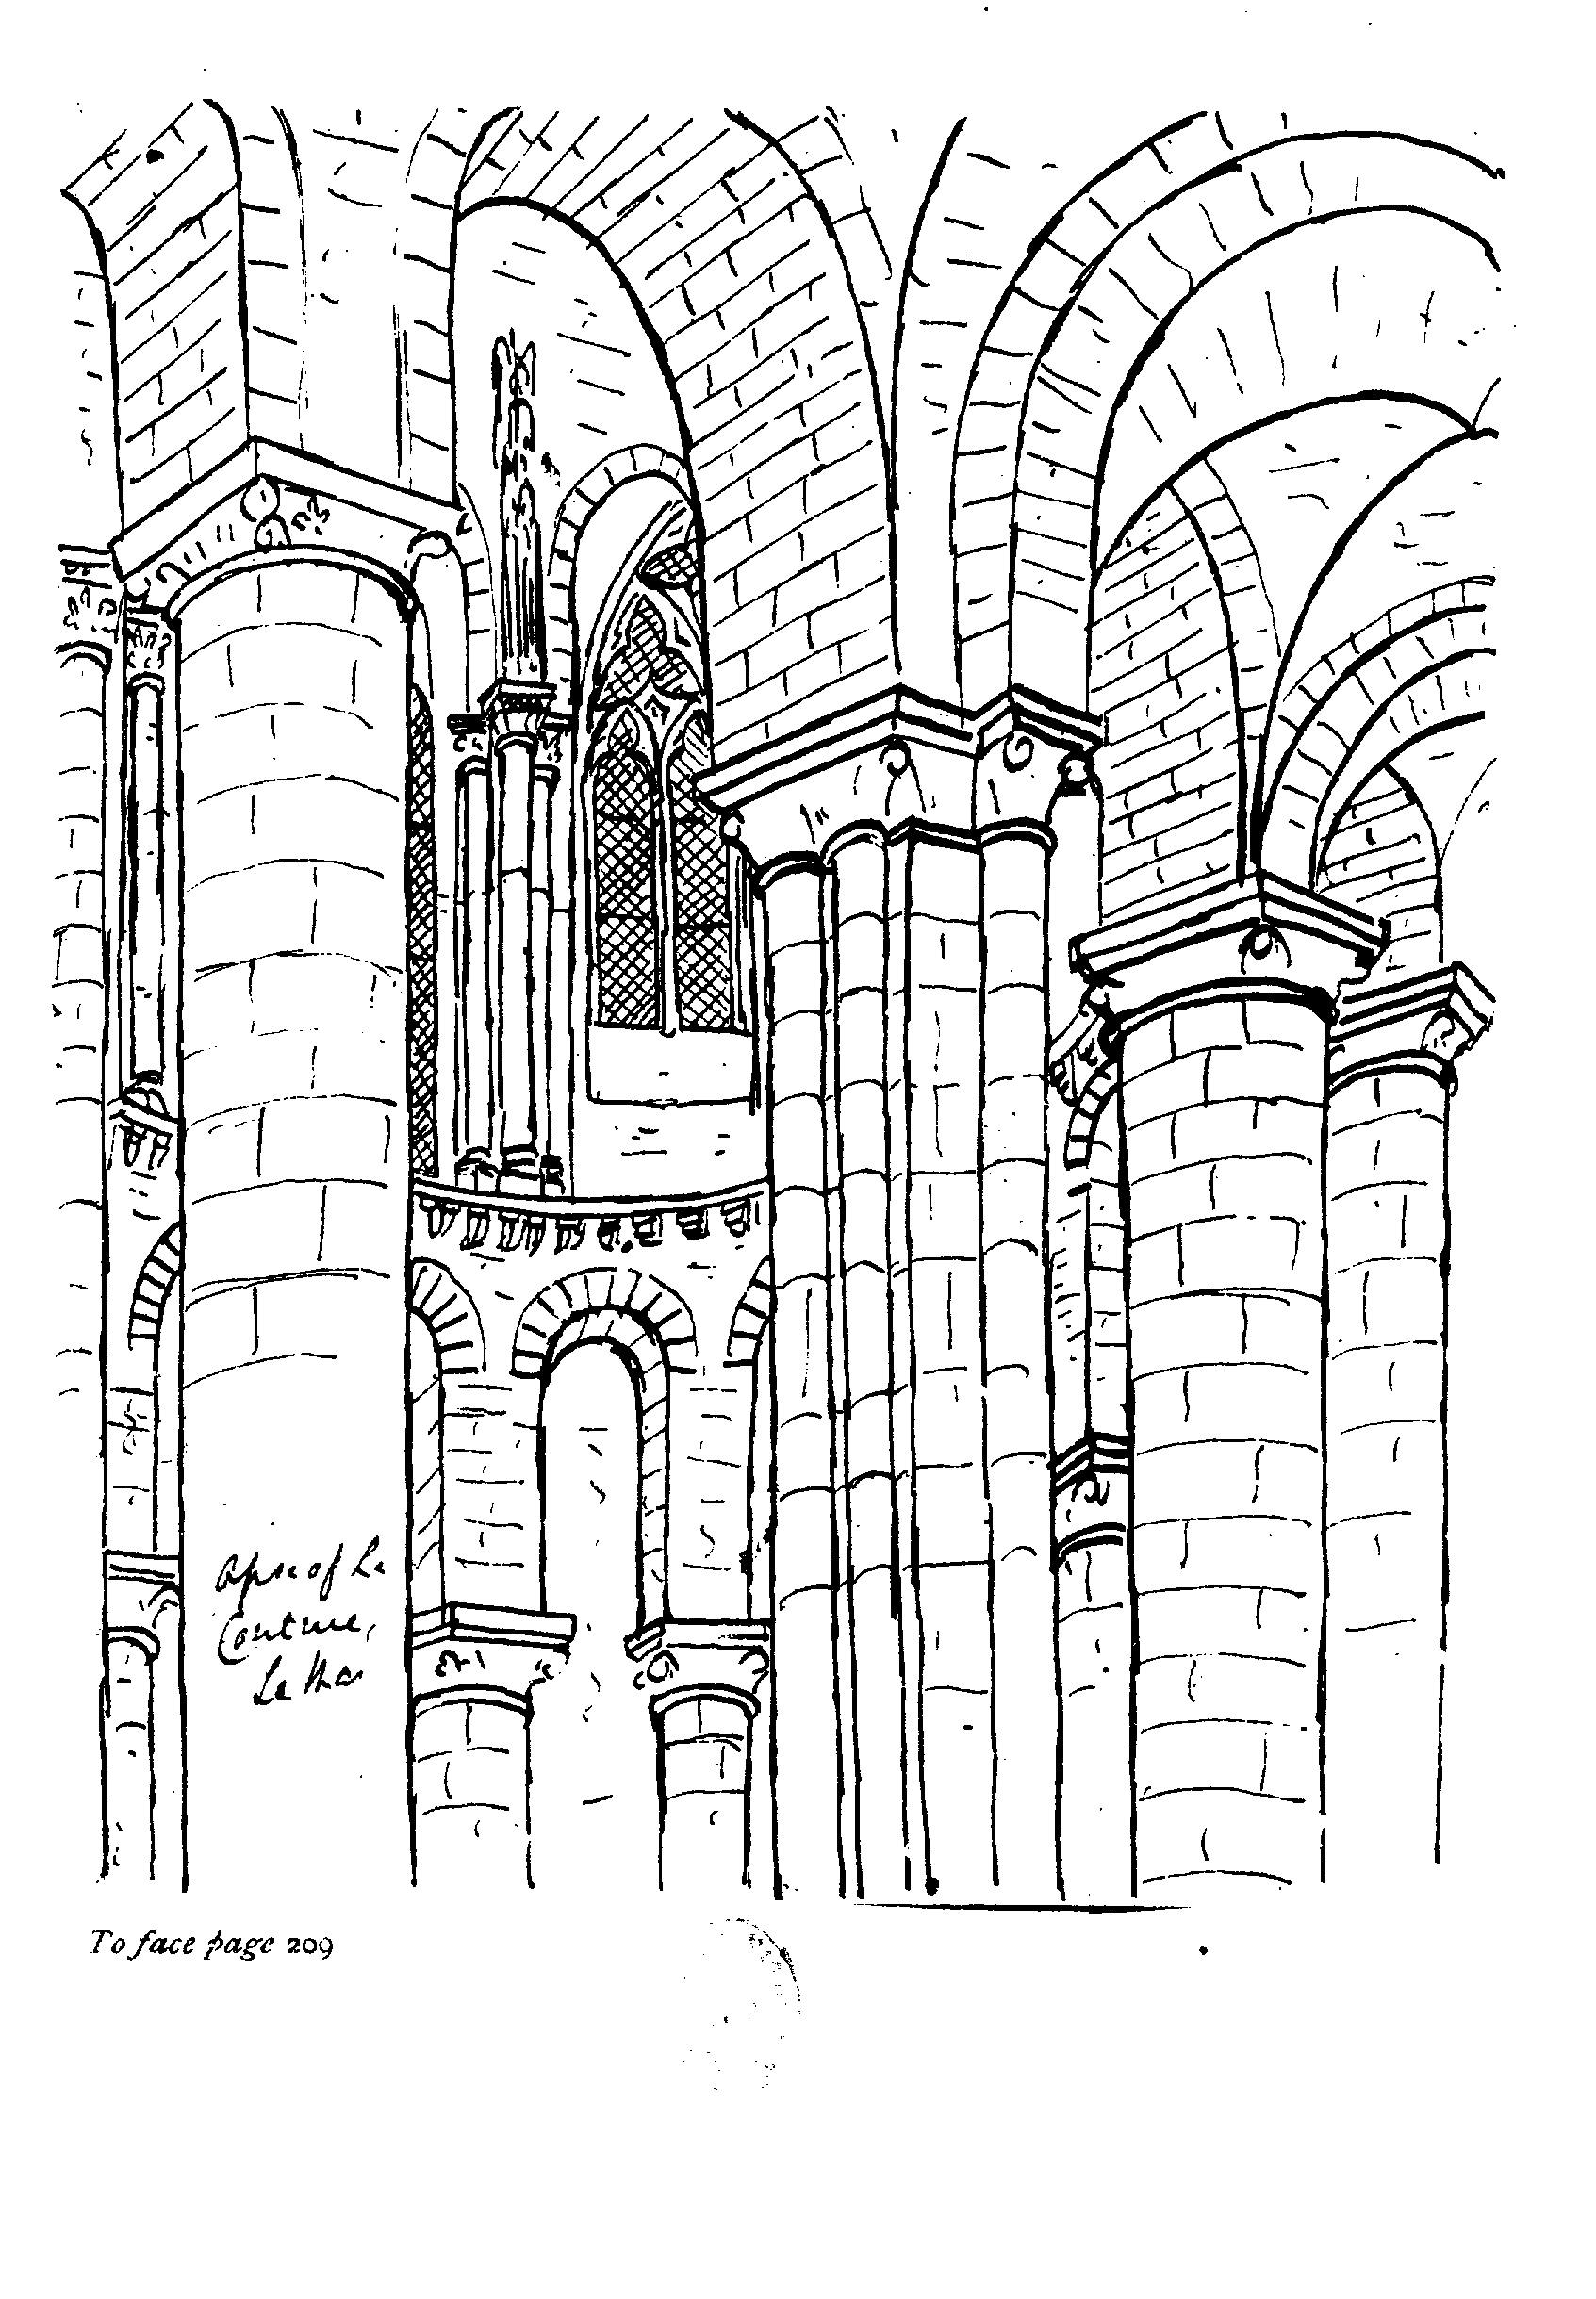 Apse of La
Couture,
Le Mans
To face page 209